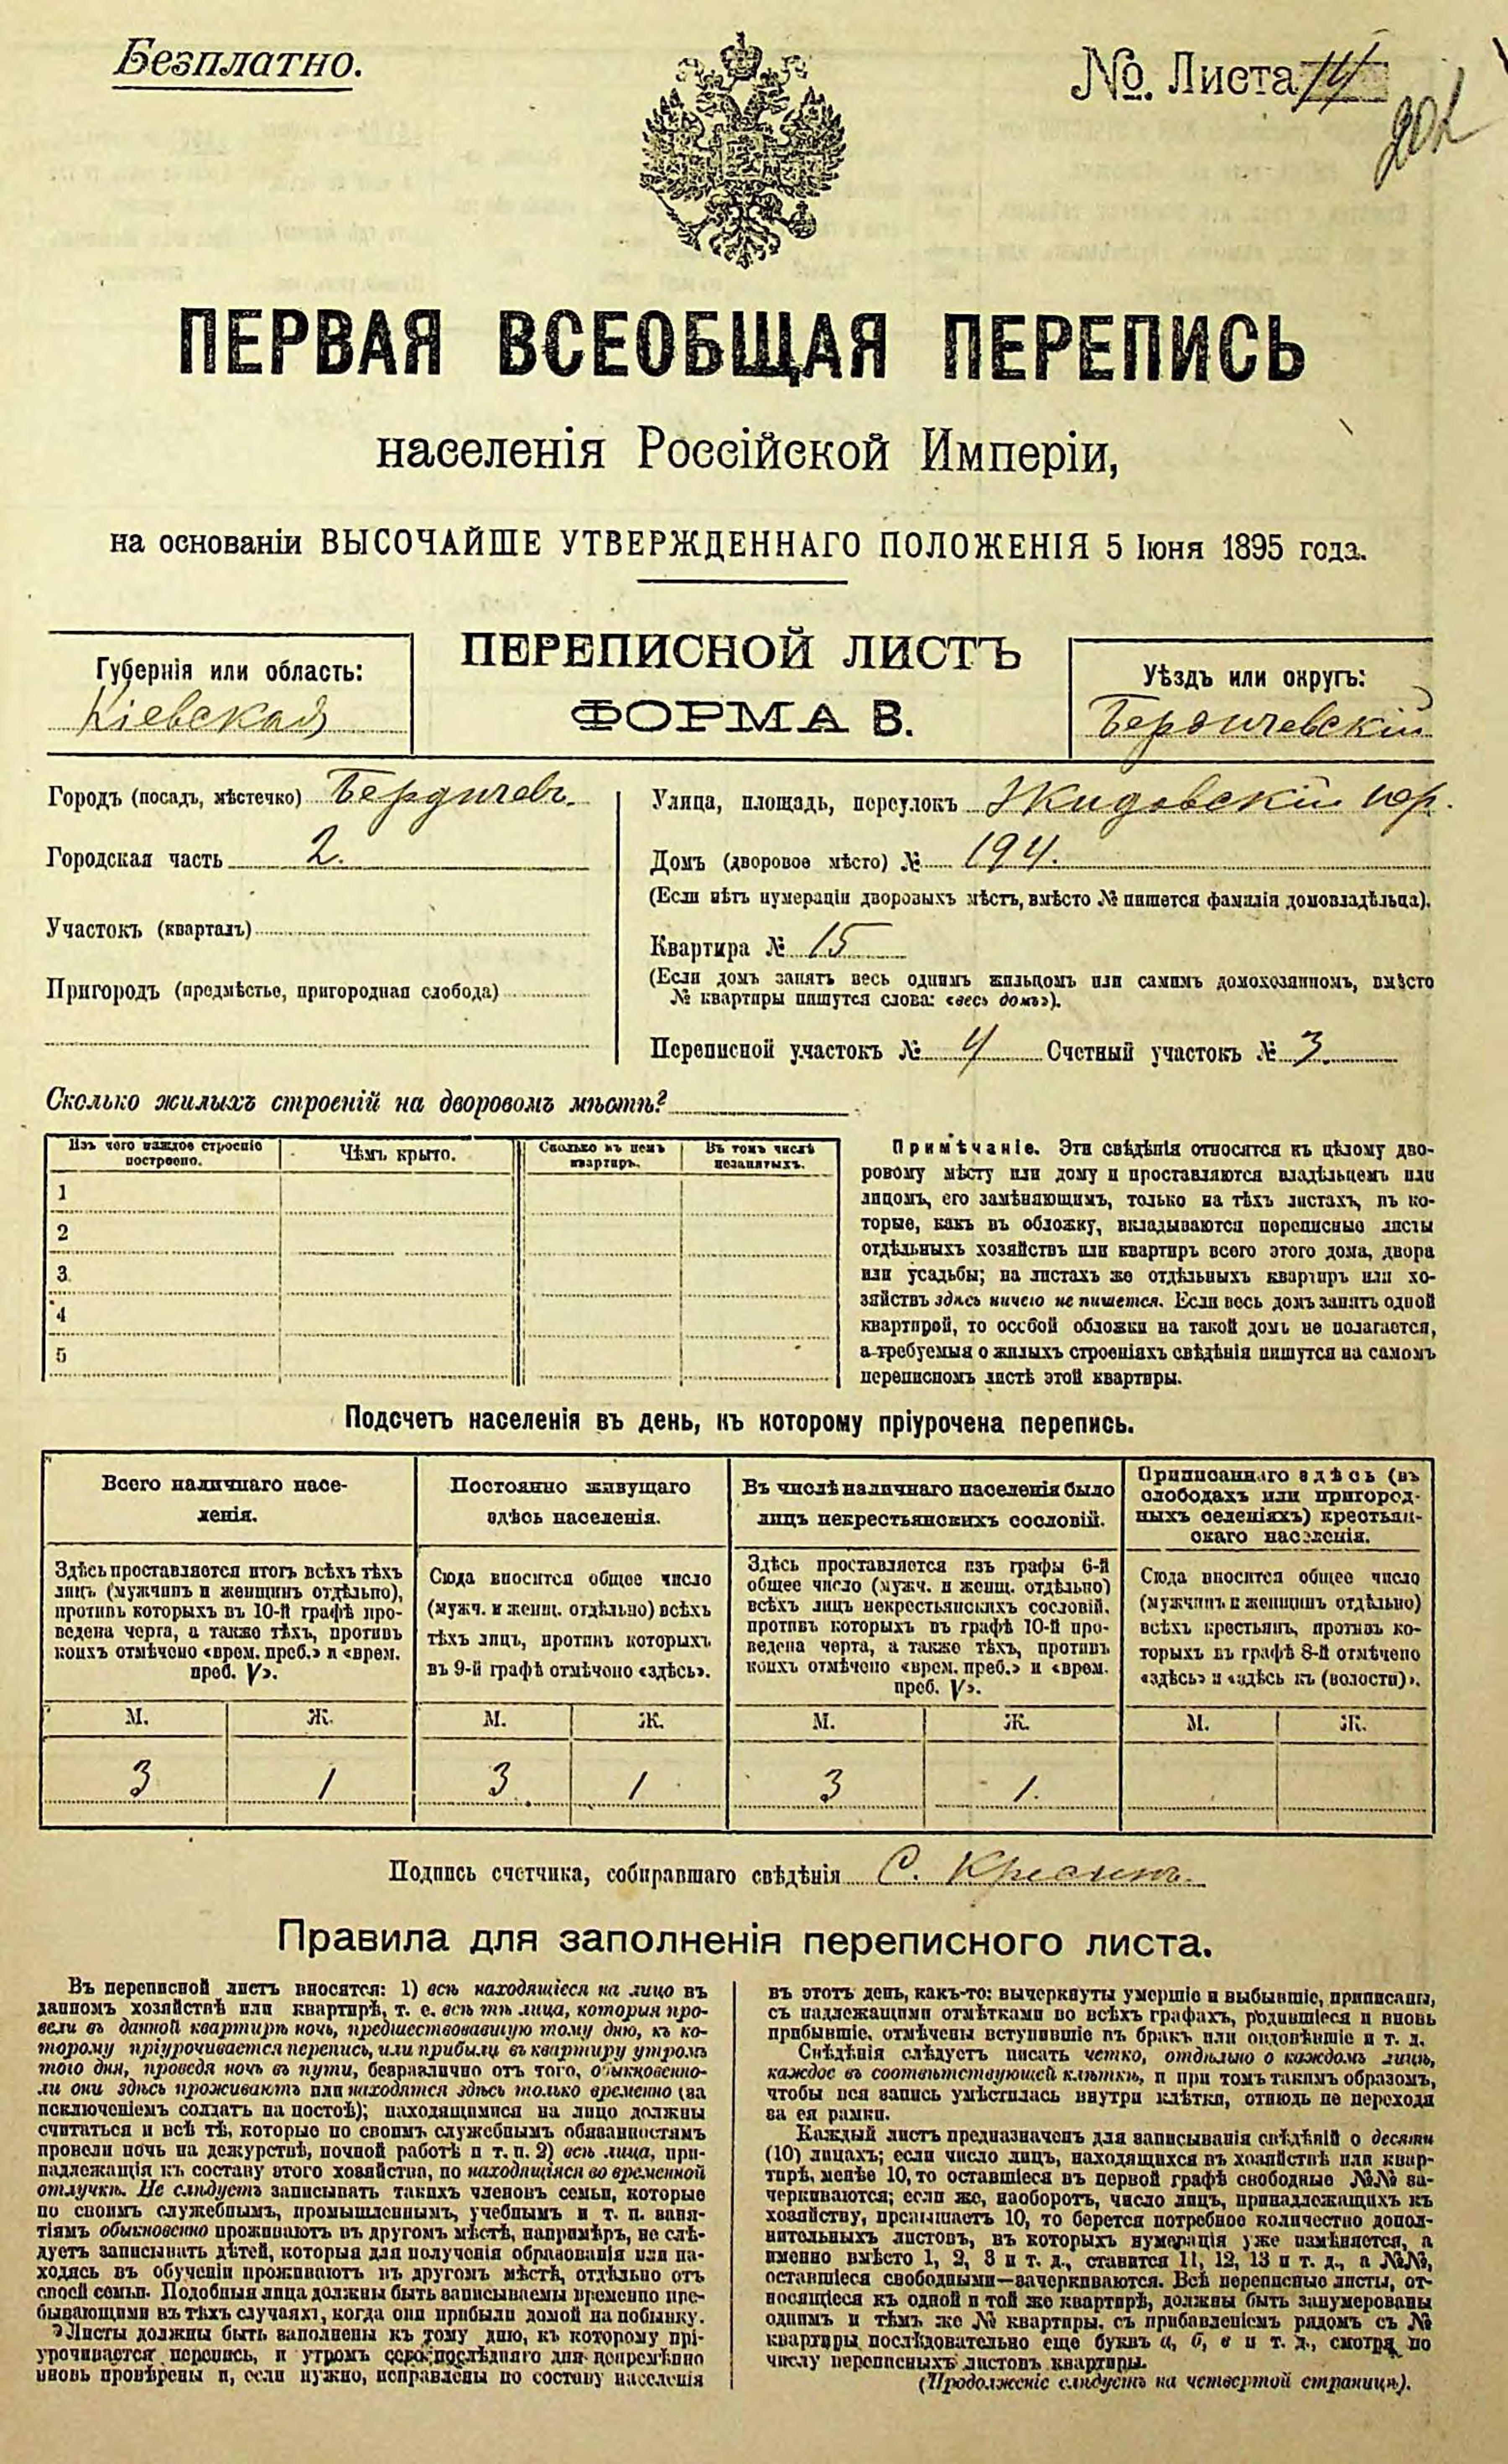 Безплатно.
№. Листа 14
201
ПЕРВАЯ ВСЕОБЩАЯ ПЕРЕПИСЬ
населенія Россійской Имперіи,
на основаніи ВЫСОЧАЙШЕ УТВЕРЖДЕННАГО ПОЛОЖЕНІЯ 5 Іюня 1895 года.
Губернія или область:
Кіевская
ПЕРЕПИСНОЙ ЛИСТЪ
ФОРМА В.
Уѣздъ или округъ:
Бердичевскій
Городъ (посадъ, мѣстечко) Бердичевъ.
Городская часть 2.
Участокъ (кварталъ)
Пригородъ (предмѣстье, пригородная слобода)
Улица, площадь, переулокъ Жидовскій пер.
Домъ (дворовое мѣсто) № 194.
(Если нѣтъ нумераціи дворовыхъ мѣстъ, вмѣсто № пишется фамилія домовладѣльца).
Квартира № 15
(Если домъ занятъ весь однимъ жильцомъ или самимъ домохозяиномъ, вмѣсто
№ квартиры пишутся слова: «весь домъ»).
Переписной участокъ № 4 Счетный участокъ № 3
Сколько жилыхъ строеній на дворовомъ мѣстѣ?
Изъ чего каждое строеніе
построено.
Чѣмъ крыто.
Сколько въ немъ
квартиръ.
Въ томъ числѣ
незанятыхъ.
1
2
3
4
5
Примѣчаніе. Эти свѣдѣнія относятся къ цѣлому дво-
ровому мѣсту или дому и проставляются владѣльцемъ или
лицомъ, его замѣняющимъ, только на тѣхъ листахъ, въ ко-
торые, какъ въ обложку, вкладываются переписные листы
отдѣльныхъ хозяйствъ или квартиръ всего этого дома, двора
или усадьбы; на листахъ же отдѣльныхъ квартиръ или хо-
зяйствъ здѣсь ничего не пишется. Если весь домъ занятъ одной
квартирой, то особой обложки на такой домъ не полагается,
а требуемыя о жилыхъ строеніяхъ свѣдѣнія пишутся на самомъ
переписномъ листѣ этой квартиры.
Подсчетъ населенія въ день, къ которому пріурочена перепись.
Всего наличнаго насе-
ленія.
Постоянно живущаго
здѣсь населенія.
Въ числѣ наличнаго населенія было
лицъ некрестьянскихъ сословій.
Приписаннаго здѣсь (въ
слободахъ или пригород-
ныхъ селеніяхъ) крестьян-
скаго населенія.
Здѣсь проставляется итогъ всѣхъ тѣхъ
лицъ (мужчинъ и женщинъ отдѣльно),
противъ которыхъ въ 10-й графѣ про-
ведена черта, а также тѣхъ, противъ
коихъ отмѣчено «врем. преб.» и «врем.
преб. V».
Сюда вносится общее число
(мужч. и женщ. отдѣльно) всѣхъ
тѣхъ лицъ, противъ которыхъ
въ 9-й графѣ отмѣчено «здѣсь».
Здѣсь проставляется изъ графы 6-й
общее число (мужч. и женщ. отдѣльно)
всѣхъ лицъ некрестьянскихъ сословій,
противъ которыхъ въ графѣ 10-й про-
ведена черта, а также тѣхъ, противъ
коихъ отмѣчено «врем. преб.» и «врем.
преб. V».
Сюда вносится общее число
(мужчинъ и женщинъ отдѣльно)
всѣхъ крестьянъ, противъ ко-
торыхъ въ графѣ 8-й отмѣчено
«здѣсь» и «здѣсь къ (волости)».
М. Ж. М. Ж. М. Ж. М. Ж.
3 1 3 1 3 1.
Подпись счетчика, собиравшаго свѣдѣнія С. Кресинъ.
Правила для заполненія переписного листа.
Въ переписной листъ вносятся: 1) всѣ находящіеся на лицо въ
данномъ хозяйствѣ или квартирѣ, т. е. всѣ тѣ лица, которыя про-
вели въ данной квартирѣ ночь, предшествовавшую тому дню, къ ко-
торому пріурочивается перепись, или прибыли въ квартиру утромъ
того дня, проведя ночь въ пути, безразлично отъ того, обыкновенно-
ли они здѣсь проживаютъ или находятся здѣсь только временно (за
исключеніемъ солдатъ на постоѣ); находящимися на лицо должны
считаться и всѣ тѣ, которые по своимъ служебнымъ обязанностямъ
провели ночь на дежурствѣ, ночной работѣ и т. п. 2) всѣ лица, при-
надлежащія къ составу этого хозяйства, но находящіяся во временной
отлучкѣ. Не слѣдуетъ записывать такихъ членовъ семьи, которые
по своимъ служебнымъ, промышленнымъ, учебнымъ и т. п. заня-
тіямъ обыкновенно проживаютъ въ другомъ мѣстѣ, напримѣръ, не слѣ-
дуетъ записывать дѣтей, которыя для полученія образованія или на-
ходясь въ обученіи проживаютъ въ другомъ мѣстѣ, отдѣльно отъ
своей семьи. Подобныя лица должны быть записываемы временно пре-
бывающими въ тѣхъ случаяхъ, когда они прибыли домой на побывку.
Листы должны быть заполнены къ тому дню, къ которому прі-
урочивается перепись, и утромъ сего послѣдняго дня непремѣнно
вновь провѣрены и, если нужно, исправлены по составу населенія
въ этотъ день, какъ-то: вычеркнуты умершіе и выбывшіе, приписаны,
съ надлежащими отмѣтками во всѣхъ графахъ, родившіеся и вновь
прибывшіе, отмѣчены вступившіе въ бракъ или овдовѣвшіе и т. д.
Свѣдѣнія слѣдуетъ писать четко, отдѣльно о каждомъ лицѣ,
каждое въ соотвѣтствующей клѣткѣ, и при томъ такимъ образомъ,
чтобы вся запись умѣстилась внутри клѣтки, отнюдь не переходя
за ея рамки.
Каждый листъ предназначенъ для записыванія свѣдѣній о десяти
(10) лицахъ; если число лицъ, находящихся въ хозяйствѣ или квар-
тирѣ, менѣе 10, то оставшіеся въ первой графѣ свободные №№ за-
черкиваются; если же, наоборотъ, число лицъ, принадлежащихъ къ
хозяйству, превышаетъ 10, то берется потребное количество допол-
нительныхъ листовъ, въ которыхъ нумерація уже измѣняется, а
именно вмѣсто 1, 2, 3 и т. д., ставится 11, 12, 13 и т. д., а №№,
оставшіеся свободными—зачеркиваются. Всѣ переписные листы, от-
носящіеся къ одной и той же квартирѣ, должны быть занумерованы
однимъ и тѣмъ же № квартиры, съ прибавленіемъ рядомъ съ №
квартиры послѣдовательно еще буквъ а, б, в и т. д., смотря по
числу переписныхъ листовъ квартиры.
(Продолженіе слѣдуетъ на четвертой страницѣ).